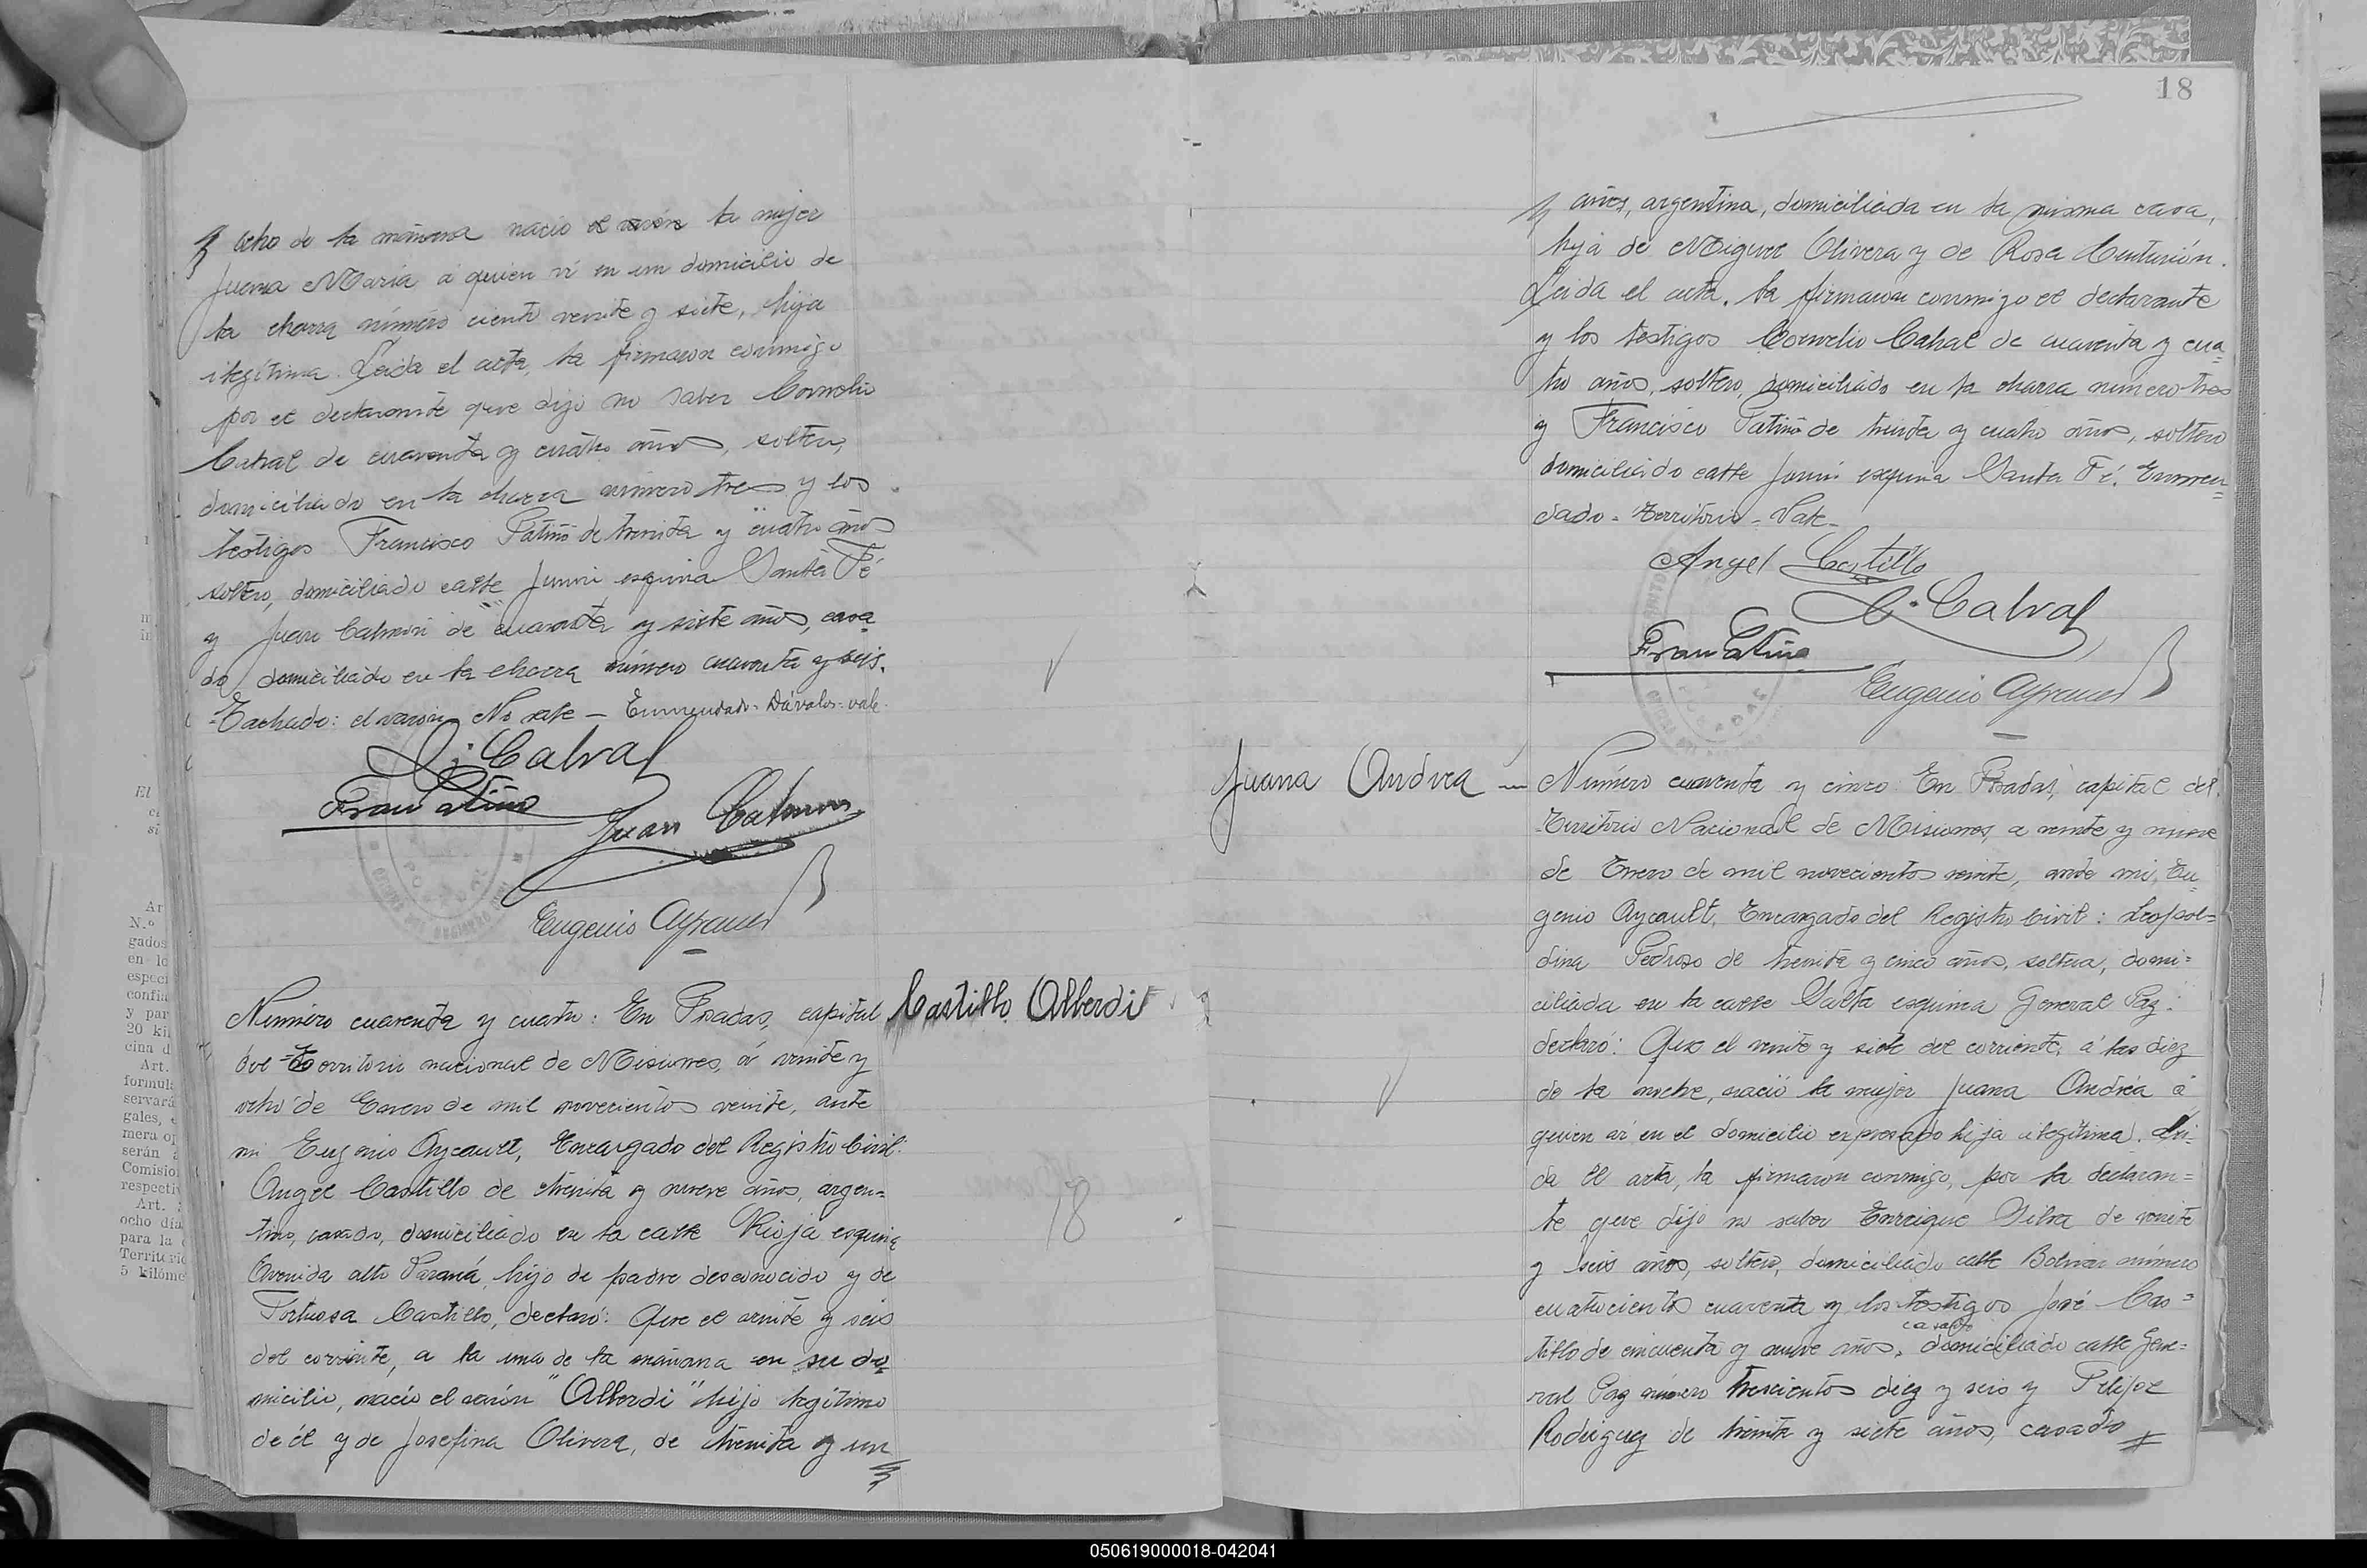 18
ocho de la mañana nació el varón la mujer
Juana María a quien ví en un domicilio de
la chacra número ciento veinte y siete, hija
ilegítima. Leida el acta, la firmaron conmigo
por el declarante que dijo no saber Cornelio
Cabral de cuarenta y cuatro años, soltero,
domiciliado en la chacra número tres y los
testigos Francisco Patiño de treinta y cuatro años
soltero, domiciliado calle Junín esquina Santa Fé
y Juan Cabrera de cuarenta y siete años, casa
do, domiciliado en la chacra número cuarenta y seis.
Tachado: el varón No vale — Enmendado = Dávalos = vale.
C. Cabral
Fran Patiño
Juan
Eugenio Aycault
Castillo Alberdi
Número cuarenta y cuatro: En Posadas, capital
del Territorio nacional de Misiones, á veinte y
ocho de Enero de mil novecientos veinte, ante
mi Eugenio Aycault, Encargado del Registro Civil:
Angel Castillo de treinta y nueve años, argen=
tino, casado, domiciliado en la calle Rioja esquina
Avenida alto Paraná, hijo de padre desconocido y de
Tortuosa Castillo, declaró: Que el veinte y seis
del corriente, a la una de la mañana en su do=
micilio, nació el varón "Alberdi" hijo legítimo
de él y de Josefina Olivera, de treinta y un
18
años, argentina, domiciliada en la misma casa,
hija de Miguel Olivera y de Rosa Centurión.
Leida el acta, la firmaron conmigo el declarante
y los testigos Cornelio Cabral de cuarenta y cua=
tro años, soltero, domiciliado en la chacra numero tres
y Francisco Patiño de treinta y cuatro años, soltero
domiciliado calle Junín esquina Santa Fé. Enmen=
dado = Territorio = Vale =
Angel Castillo
C. Cabral
Fran Patiño
Eugenio Aycault
Juana Andrea
Número cuarenta y cinco: En Posadas, capital del
Territorio Nacional de Misiones, a veinte y nueve
de Enero de mil novecientos veinte, ante mi, Eu=
genio Aycault, Encargado del Registro Civil: Leopol=
dina Pedroso de treinta y cinco años, soltera, domi=
ciliada en la calle Salta esquina General Paz:
declaró: Que el veinte y siete del corriente, á las diez
de la noche, nació la mujer Juana Andréa á
quien ví en el domicilio expresado hija ilegítima. Lei=
da el acta, la firmaron conmigo, por la declaran=
te que dijo no saber Enrique Silva de veinte
y seis años, soltero, domiciliado calle Bolivar número
cuatrocientos cuarenta y los testigos José Cas=
tillo de cincuenta y nueve años, casado domiciliado calle Gene=
ral Paz número trescientos diez y seis y Felipe
Rodriguez de treinta y siete años, casado
050619000018-042041